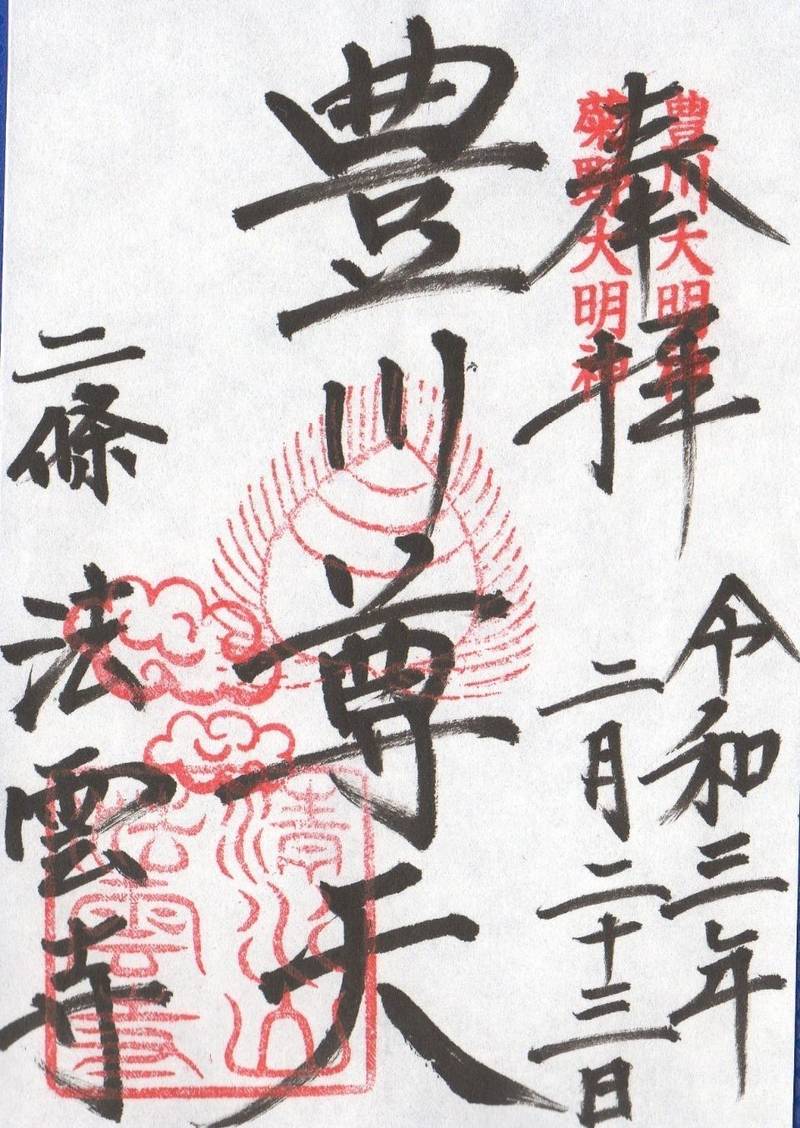 奉拝
豊川大明神
菊野大明神
令和三年
二月二十三日
豊川尊天
二條
法雲寺
清水山
法雲寺